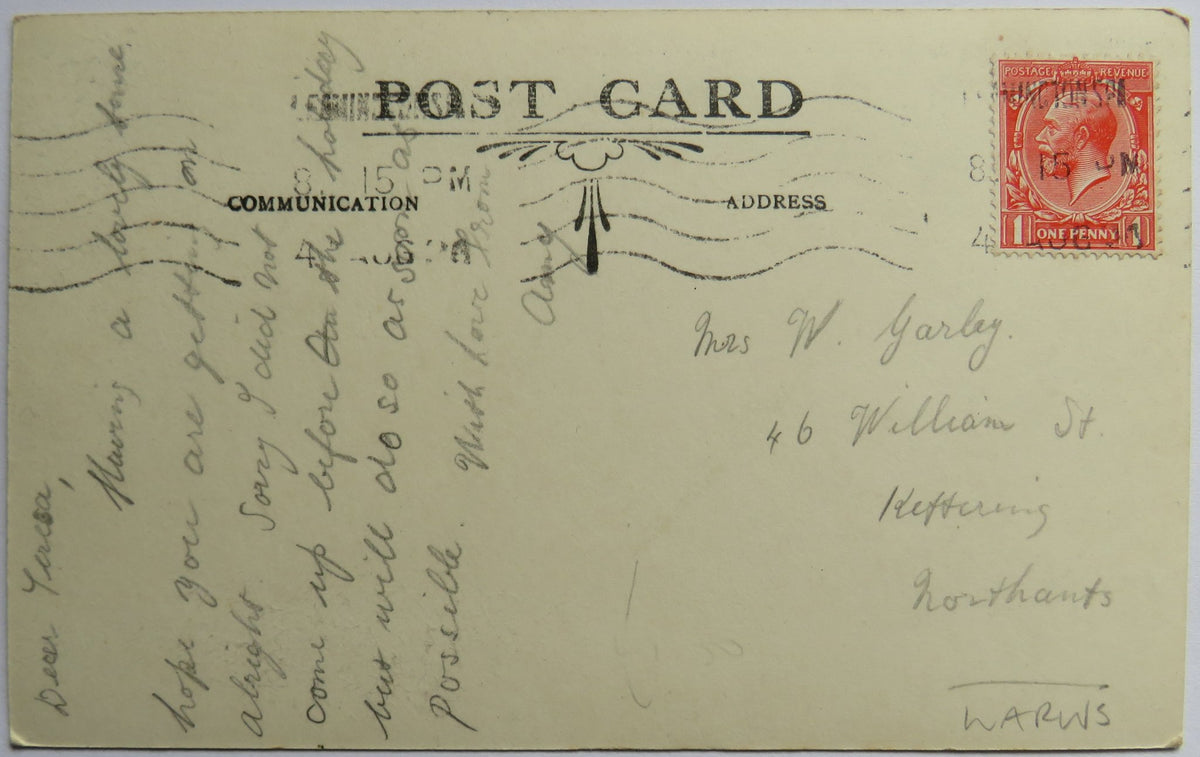 POST CARD
COMMUNICATION
ADDRESS
POSTAGE REVENUE
1 ONE PENNY 1
8 15 PM
4 AUG
8 15 PM
4 AUG
Dear Teresa,
Having a lovely time
hope you are getting on
alright. Sorry I did not
come up before the holiday
but will do so as soon as
possible. With love from
Amy
Mrs W. Garley.
46 William St.
Kettering
Northants
WARWS